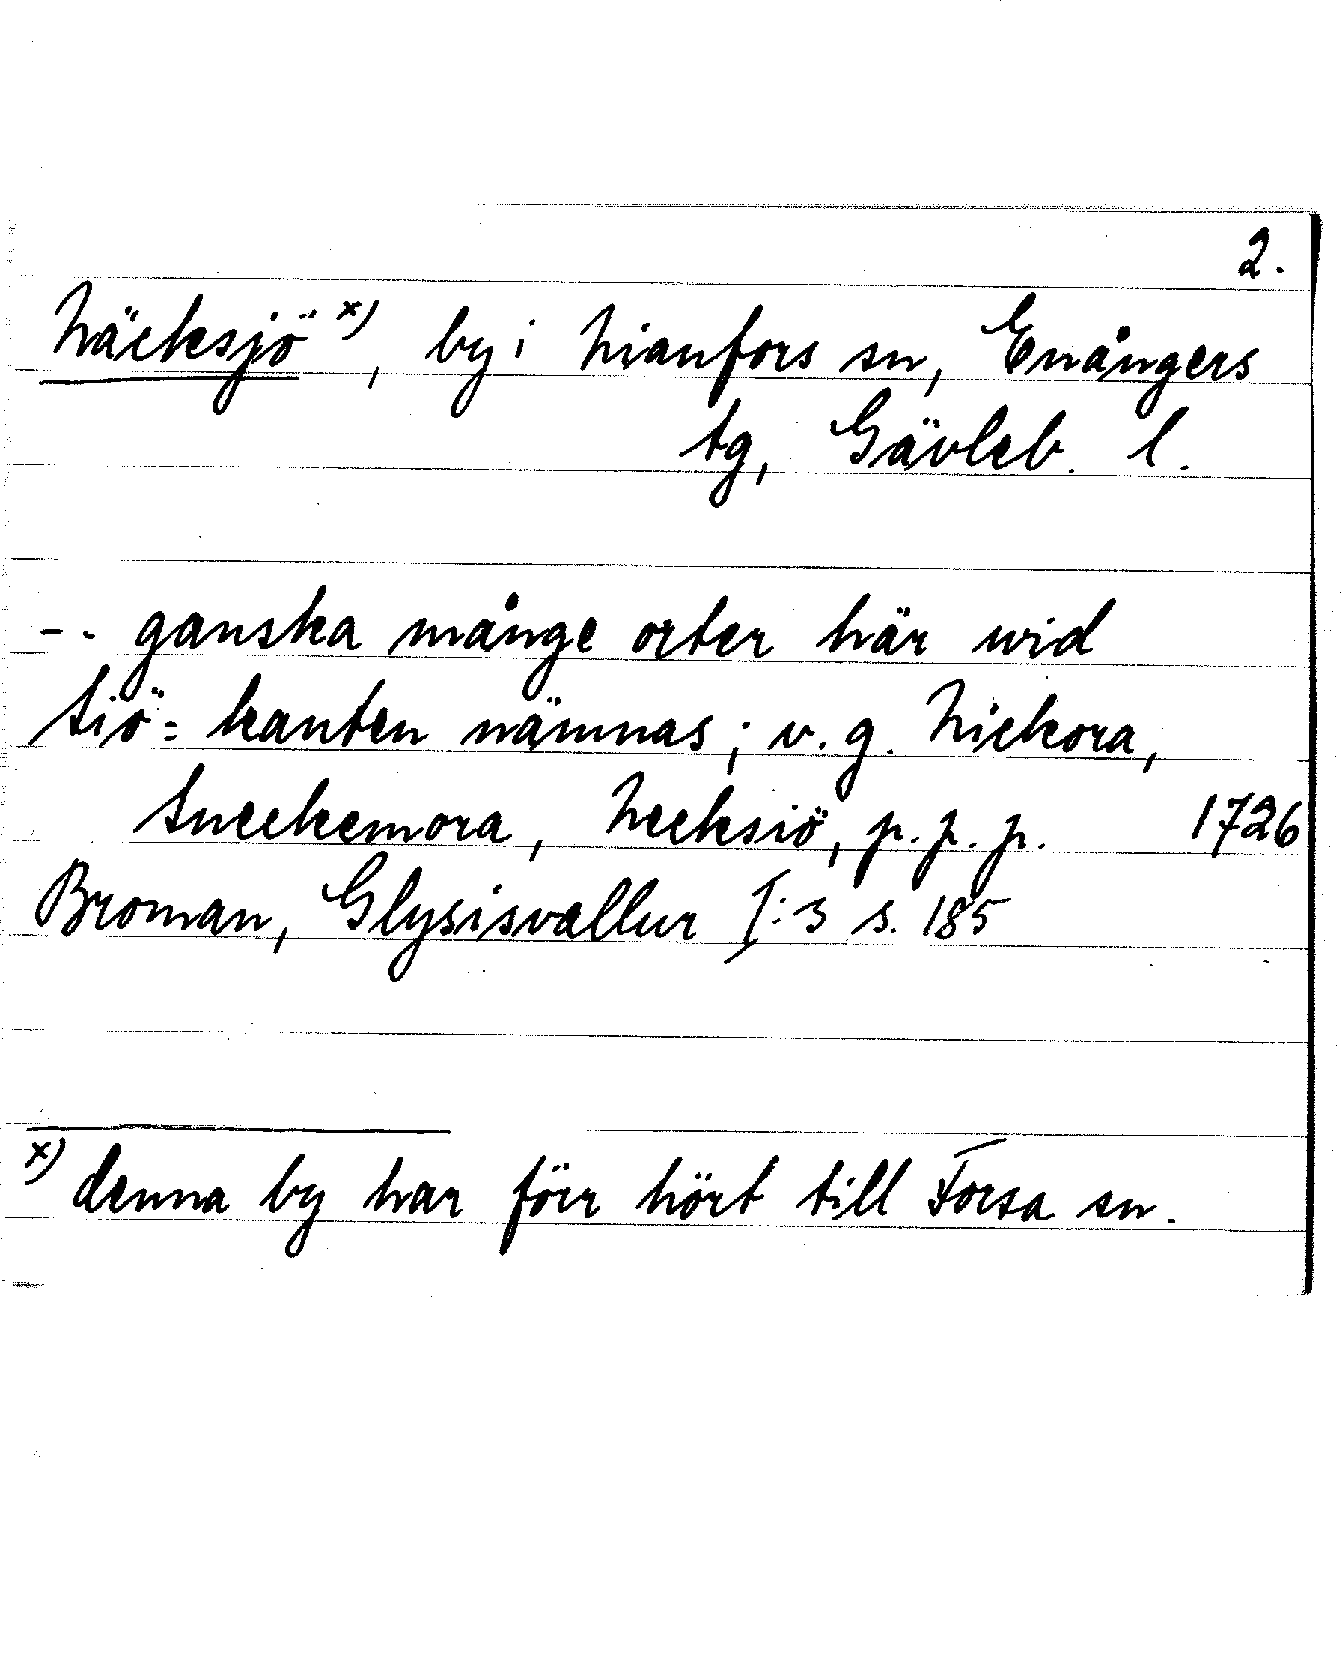 2.
Häcksjö x), by i Hianfors sn, Enångers
tg, Gävleb. l.
-- ganska månge orter här wid
Siö=kanten nämnas; v. g. Hickora,
Sneckemora, Hecksiö, p. p. p. 1726
Broman, Glysisvallur I:3 s. 185
x) denna by har förr hört till Forsa sn.